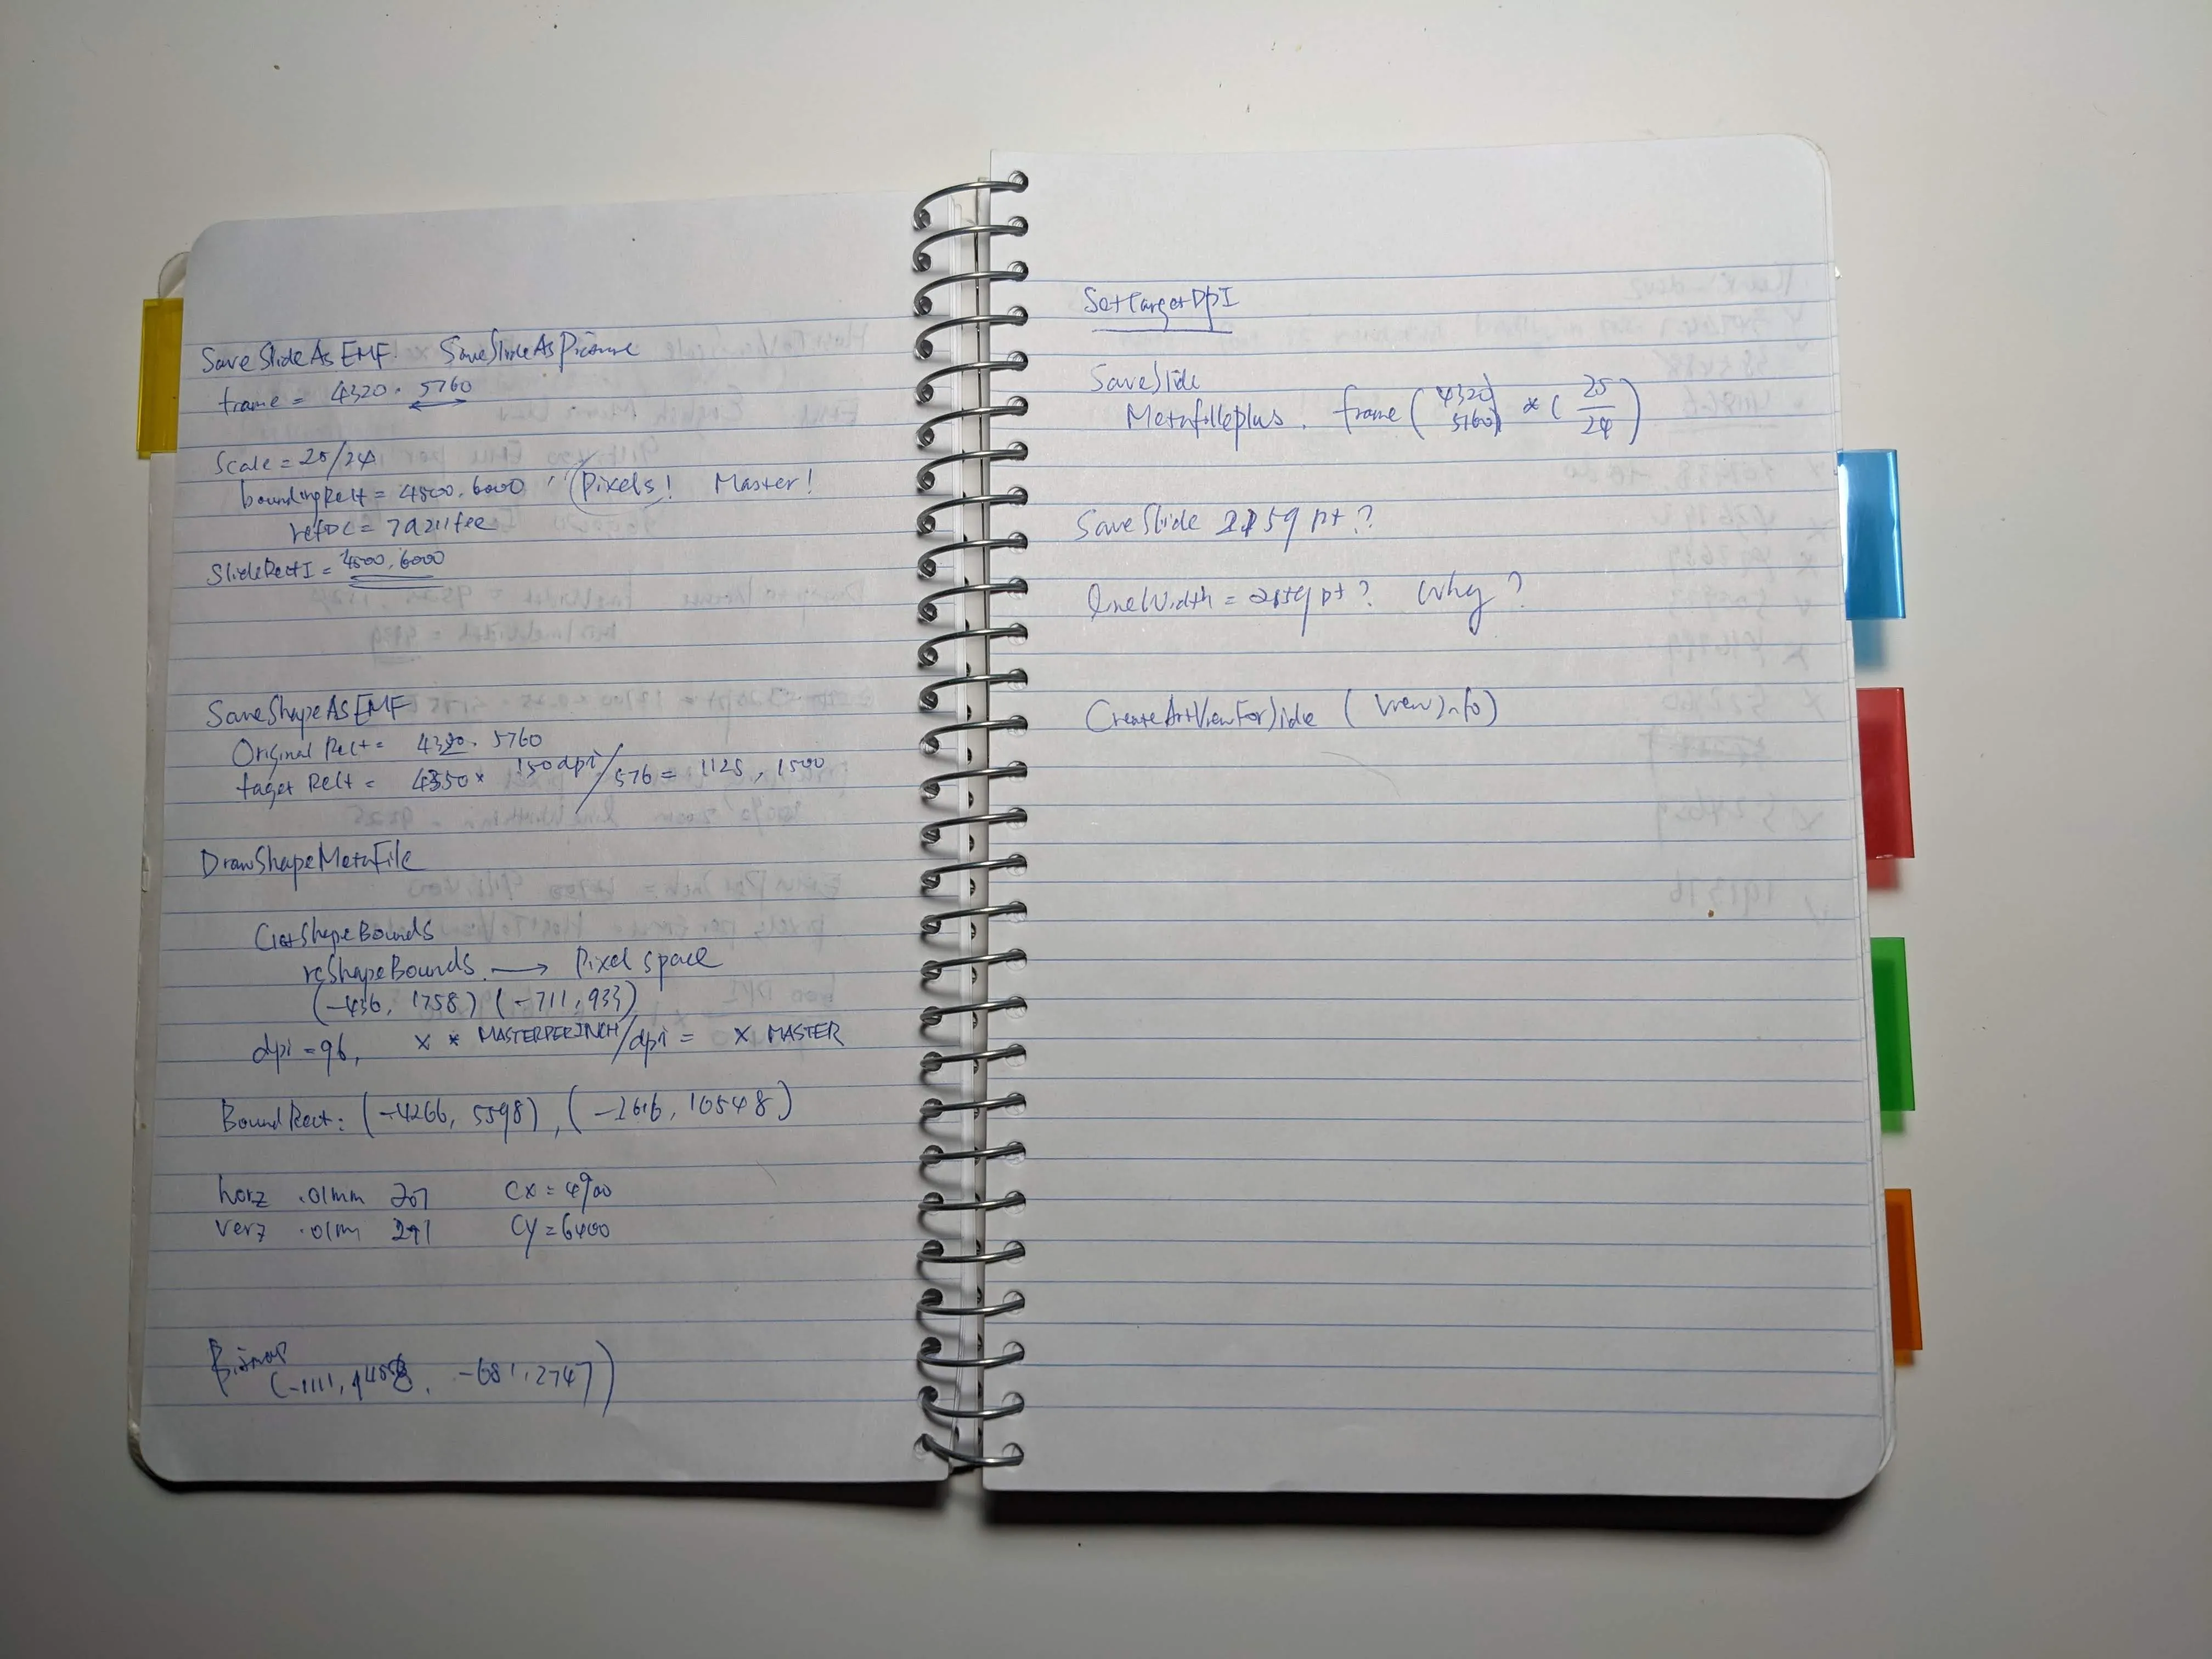 SaveSlideAsEMF. SaveSlideAsPicture
frame = 4320 . 5760
Scale = 25/24
boundingRect = 4500, 6000 , (Pixels! Master!
refDC = 7a211fee
SlideRectI = 4500, 6000
SaveShapeAsEMF
Original Rect = 4320. 5760
taget Rect = 4350 × 150dpi/576 = 1125, 1500
DrawShapeMetaFile
GetShapeBounds
rcShapeBounds. → Pixel space
(-436, 1758) (-711, 933)
dpi = 96, X * MASTERPERINCH/dpi = X MASTER
BoundRect: (-4266, 5598), (-2616, 10548)
horz .01mm 207 Cx = 4900
verz .01m 291 Cy = 6400
Bitmap
(-1111, , -681, 2747)
SetTargetDpI
SaveSlide
Metafilleplus. frame (4320 5760) * (25/24)
SaveSlide 2159 pt?
lineWidth = 2159 pt? Why?
CreateArtViewForSlide (ViewInfo)